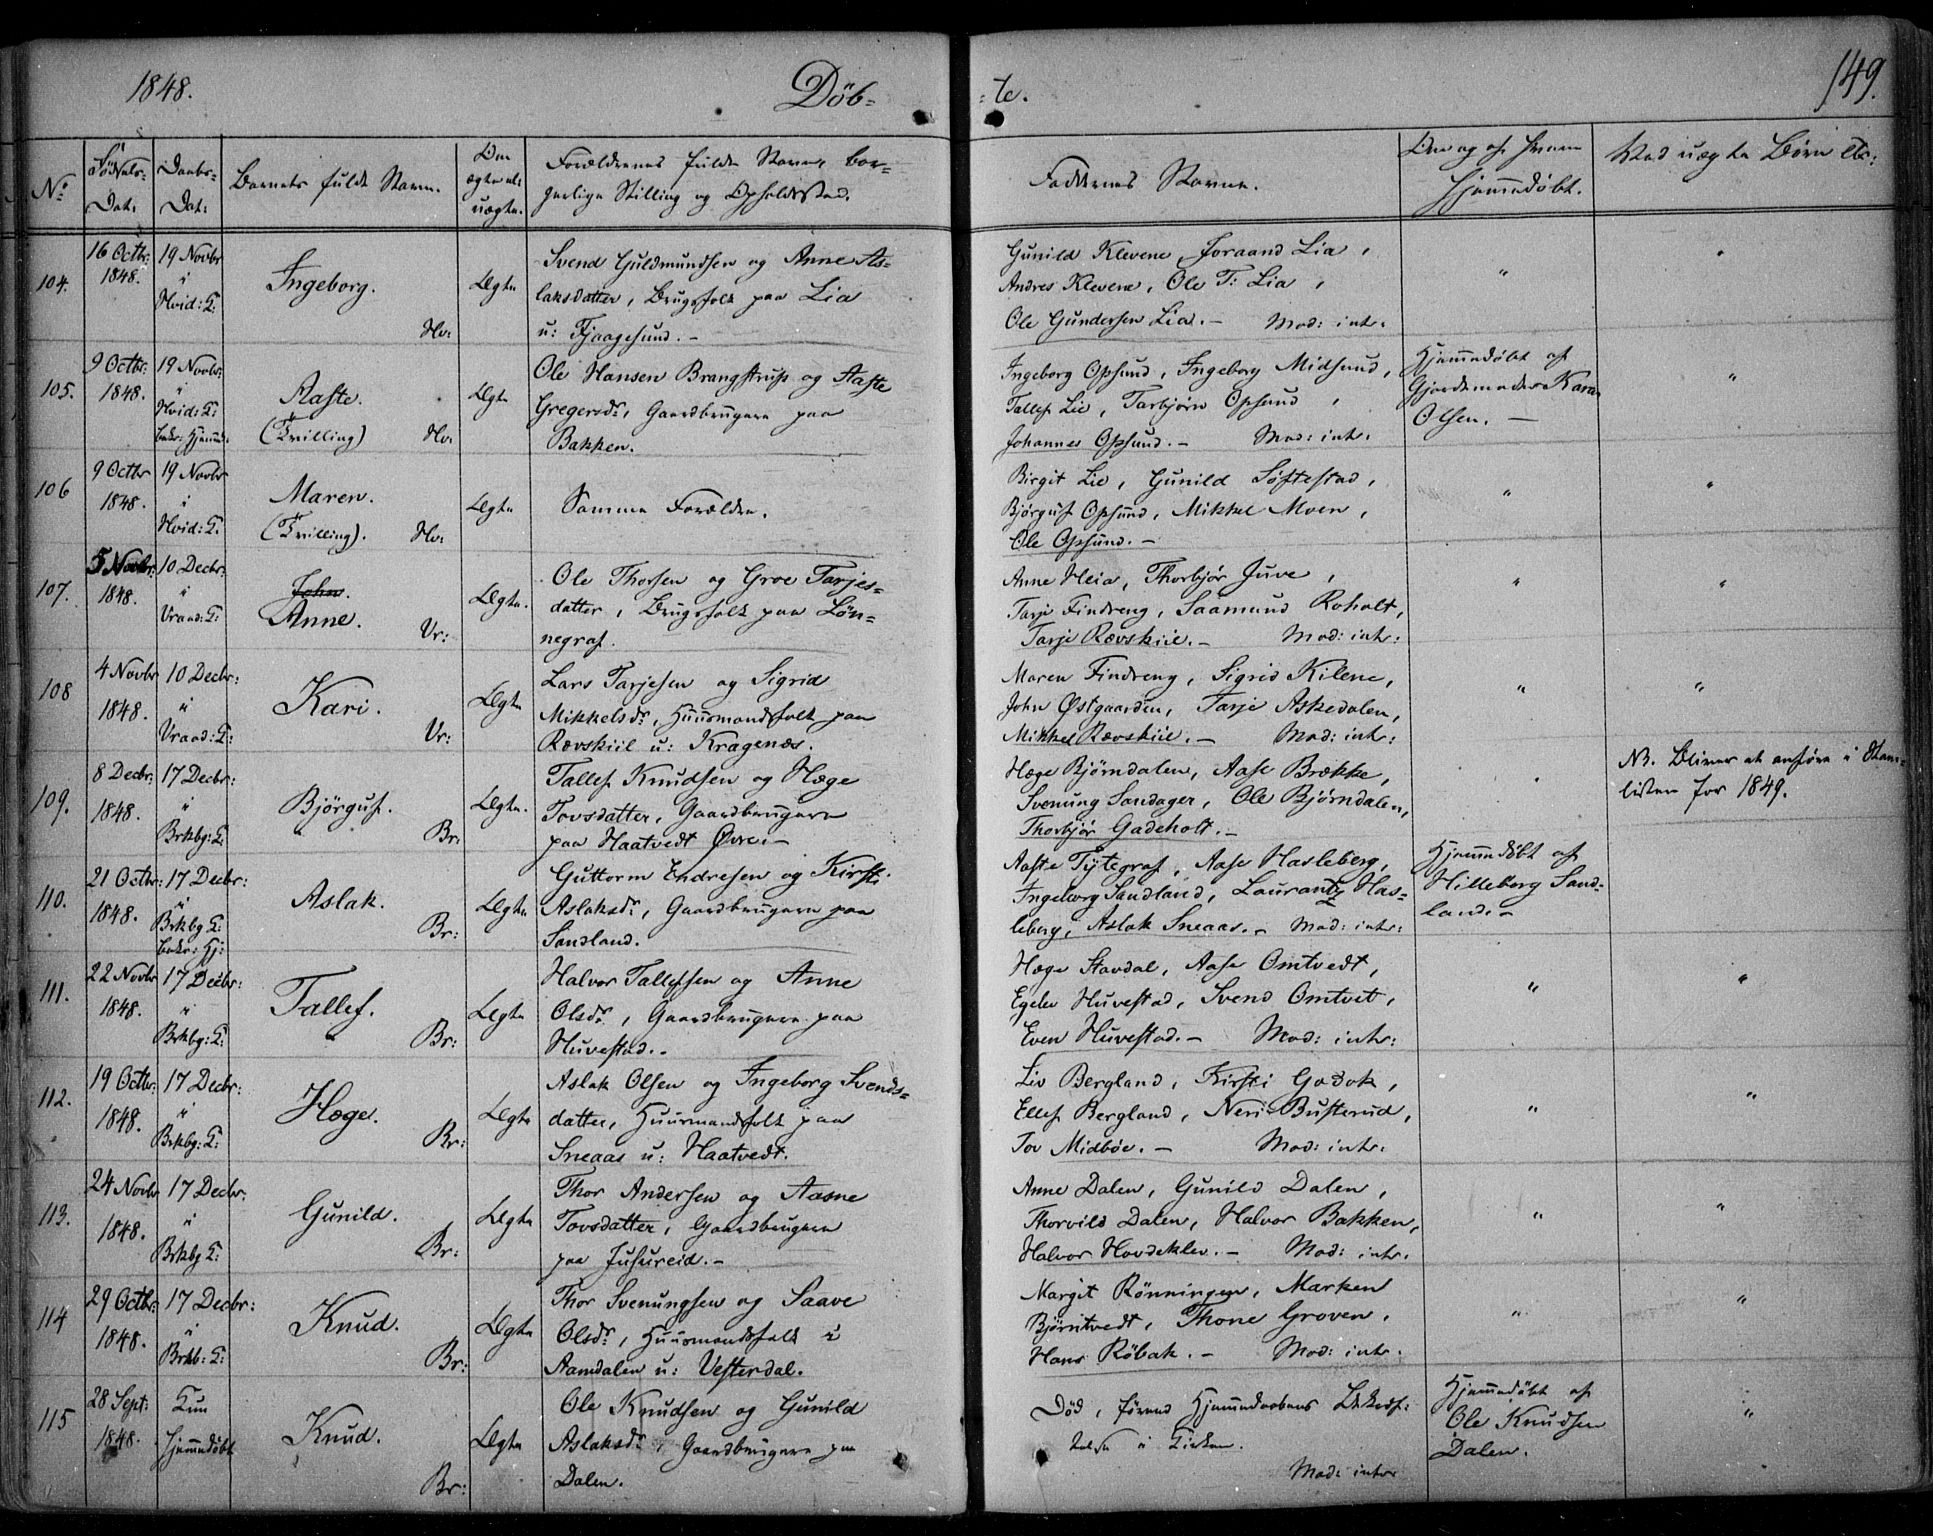 1848.
Döb-
-te.
149.
No
Fødsels-
Dat:
Daabs-
Dat:
Barnets fulde Navn.
Om
ægte el:
uægte.
Forældrenes fulde Navne, bor-
gerlige Stilling og Opholdssted.
Faddernes Navne.
Om og af hvem
hjemmedøbt.
Ved uægte Børn etc:
104.
16 Octbr:
1848.
19 Novbr
"
Hvid: K:
Ingeborg.
Hv:
Ægte
Svend Guldmundsen og Anne As-
laksdatter, Brugsfolk paa Lia
u: Fjaagesund. -
Gunild Klevene, Joraand Lia,
Andres Klevene, Ole T: Lia,
Ole Gundersen Lia. - Mod: intr:
"
"
105.
9 Octbr:
1848.
19 Novbr:
"
Hvid: K:
bekr: Hjemmed:
Aaste.
(Tvilling)
Hv:
Ægte
Ole Hansen Brangstrup og Aaste
Gregersdr, Gaardbrugere paa
Bakken.
Ingeborg Opsund, Ingeborg Midsund,
Tallef Lie, Tarbjørn Opsund,
Johannes Opsund. - Mod: intr:
Hjemmedøbt af
Gjordemoder Karen
Olsen. -
"
106
9 Octbr
1848.
19 Novbr
"
Hvid: K:
Maren.
(Tvilling).
Hv:
Ægte
Samme Forældre.
Birgit Lie, Gunild Søftestad,
Bjørguf Opsund, Mikkel Moen,
Ole Opsund. -
"
"
107.
5 Novbr:
1848.
10 Decbr:
"
Vraad: K:
John.
Anne.
Vr:
Ægte.
Ole Thorsen og Groe Tarjes-
datter, Brugsfolk paa Løn-
negraf.
Anne Heia, Thorbjør Juve,
Tarje Findreng, Saamund Roholt,
Tarje Rævskiil. - Mod: intr:
"
"
108
4 Novbr
1848.
10 Decbr:
"
Vraad: K:
Kari.
Vr:
Ægte
Lars Tarjesen og Sigrid
Mikkelsdr, Huusmandsfolk paa
Rævskiil u: Kragenæs.
Maren Findreng, Sigrid Kilene,
John Østgaarden, Tarje Askedalen,
Mikkel Rævskiil. - Mod: intr:
"
"
109.
8 Decbr:
1848.
17 Decbr:
"
Brkbg: K:
Björguf.
Br:
Ægte.
Tallef Knudsen og Hæge
Tovsdatter, Gaardbrugere
paa Haatvedt Øvre. -
Hæge Bjørndalen, Aase Brække,
Svenung Sandager, Ole Bjørndalen,
Thorbjør Gadeholt. -
"
NB. Bliver at anføre i
listen for 1849.
110.
21 Octbr:
1848.
17 Decbr:
"
Brkbg K:
bekr: Hj:
Aslak.
Br:
Ægte
Guttorm Endresen og Kirsti
Aslaksdr, Gaardbrugere paa
Sandland.
Aaste Tytegraf, Aase Hasleberg,
Ingeborg Sandland, Laurantz Has-
leberg, Aslak Sneaas. - Mod: intr:
Hjemmedøbt af
Hilleborg Sand-
land. -
111.
22 Novbr
1848.
17 Decbr:
"
Brkbg: K:
Tallef.
Br:
Ægte
Halvor Tallefsen og Anne
Olsdr, Gaardbrugere paa
Huvestad. -
Hæge Stavdal, Aase Omtvedt,
Egelev Huvestad, Svend Omtvet,
Even Huvestad. - Mod: intr:
"
"
112.
19 Octbr:
1848.
17 Decbr:
"
Brkbg: K:
Hæge.
Br:
Ægte
Aslak Olsen og Ingeborg Svends-
datter, Huusmandsfolk paa
Sneaas u: Haatvedt.
Liv Bergland, Kirsti Godok,
Ellef Bergland, Neri Busterud,
Tov Midbøe. - Mod: intr.
"
"
113.
24 Novbr
1848.
17 Decbr:
"
Brkbg K:
Gunild.
Br:
Ægte
Thor Andersen og Aasne
Tovsdatter, Gaardbrugere
paa Jusureid. -
Anne Dalen, Gunild Dalen,
Thorvild Dalen, Halvor Bakken,
Halvor Hovdeklev. - Mod: intr.
"
"
114
29 Octbr:
1848.
17 Decbr:
"
Brkb: K:
Knud.
Br:
Ægte
Thor Svenungsen og Saave
Olsdr, Huusmandsfolk i
Aamdalen u: Vesterdal.
Margit Rönningen, Marken
Bjørntvedt, Thone Groven,
Hans Röbak. - Mod: intr.
"
"
115
28 Sept:
1848.
Kun
hjemmedöbt
Knud.
Br:
Ægte
Ole Knudsen og Gunild
Aslaksdr, Gaardbrugere paa
Dalen.
Død, førend Hjemmedaabens Bekræf-
telse i Kirken.
Mod: intr
Hjemmedöbt af
Ole Knudsen
Dalen.
"